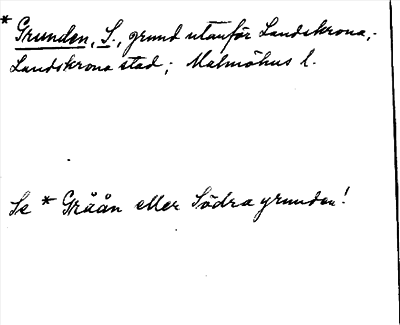 * Grunden, S., grund utanför Landskrona,
Landskrona stad; Malmöhus l.
Se * Gråån eller Södra grunden!